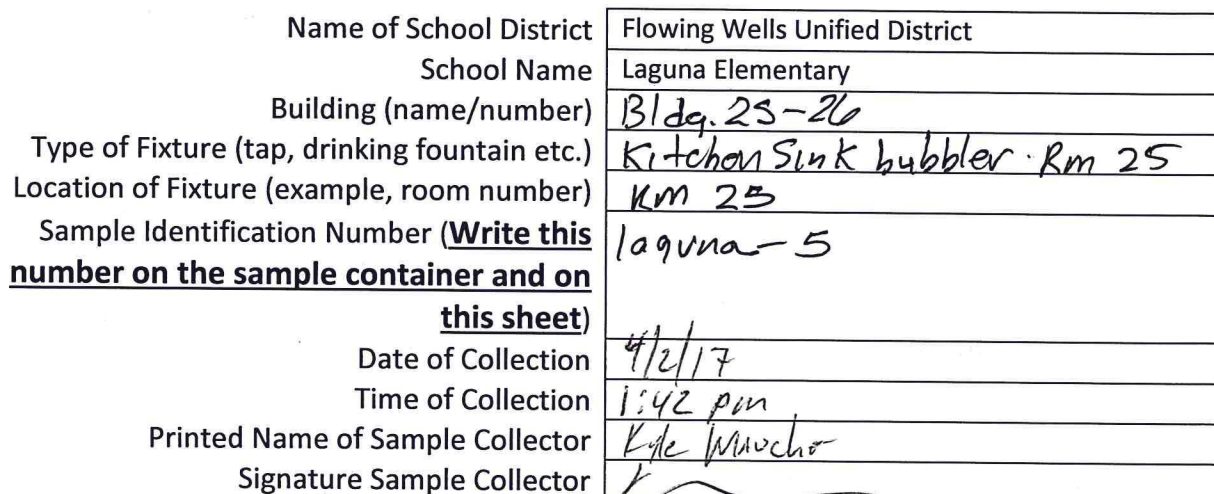 Name of School District Flowing Wells Unified District
School Name Laguna Elementary
Building (name/number) Bldg. 25-26
Type of Fixture (tap, drinking fountain etc.) Kitchen Sink bubbler. Rm 25
Location of Fixture (example, room number) Rm 25
Sample Identification Number (Write this laguna-5
number on the sample container and on
this sheet)
Date of Collection 4/2/17
Time of Collection 1:42 pm
Printed Name of Sample Collector Kyle
Signature Sample Collector